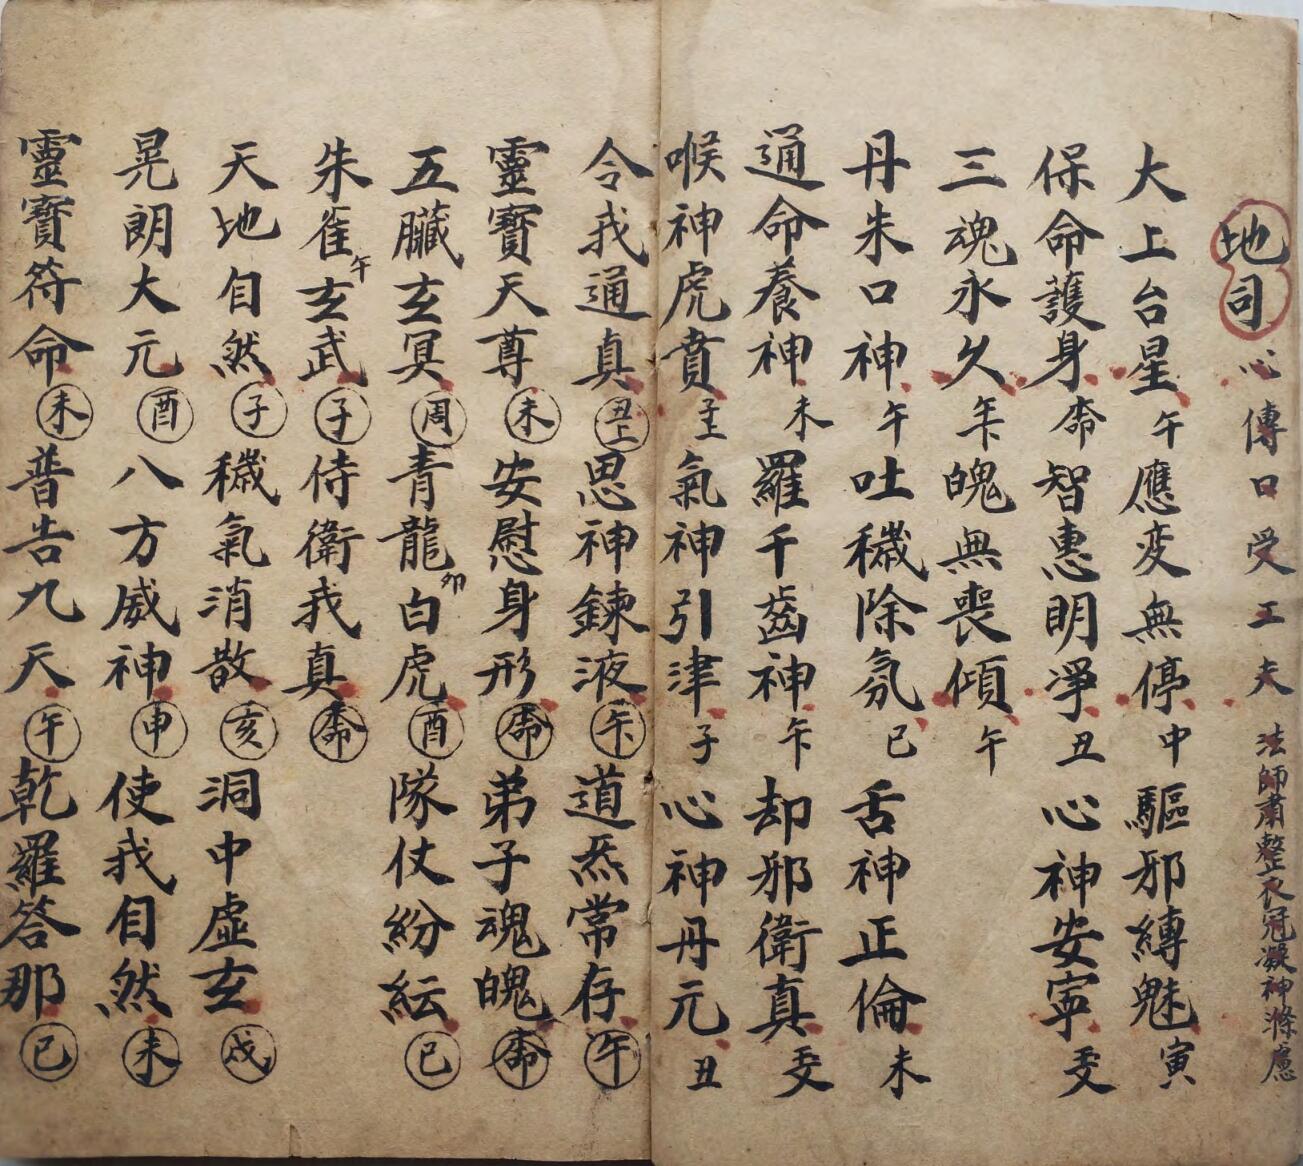 地司心傳口受工夫 法師肅整衣冠凝神滌慮
大上台星午應変無停中驅邪縛魅寅
保命護身命智惠明淨丑心神安寧
三魂永久魄無喪傾午
丹朱口神午吐穢除氛巳舌神正倫未
通命養神未羅千齒神却邪衛真
喉神虎賁氣神引津子心神丹元丑
令我通真思神鍊液道炁常存午
靈寶天尊未安慰身形弟子魂魄
五臟玄冥周青龍卯白虎酉隊仗紛紜巳
朱雀午玄武子侍衛我真
天地自然子穢氣消散亥洞中虛玄戌
晃朗大元酉八方威神申使我自然未
靈寶符命未普告九天午乾羅答那巳